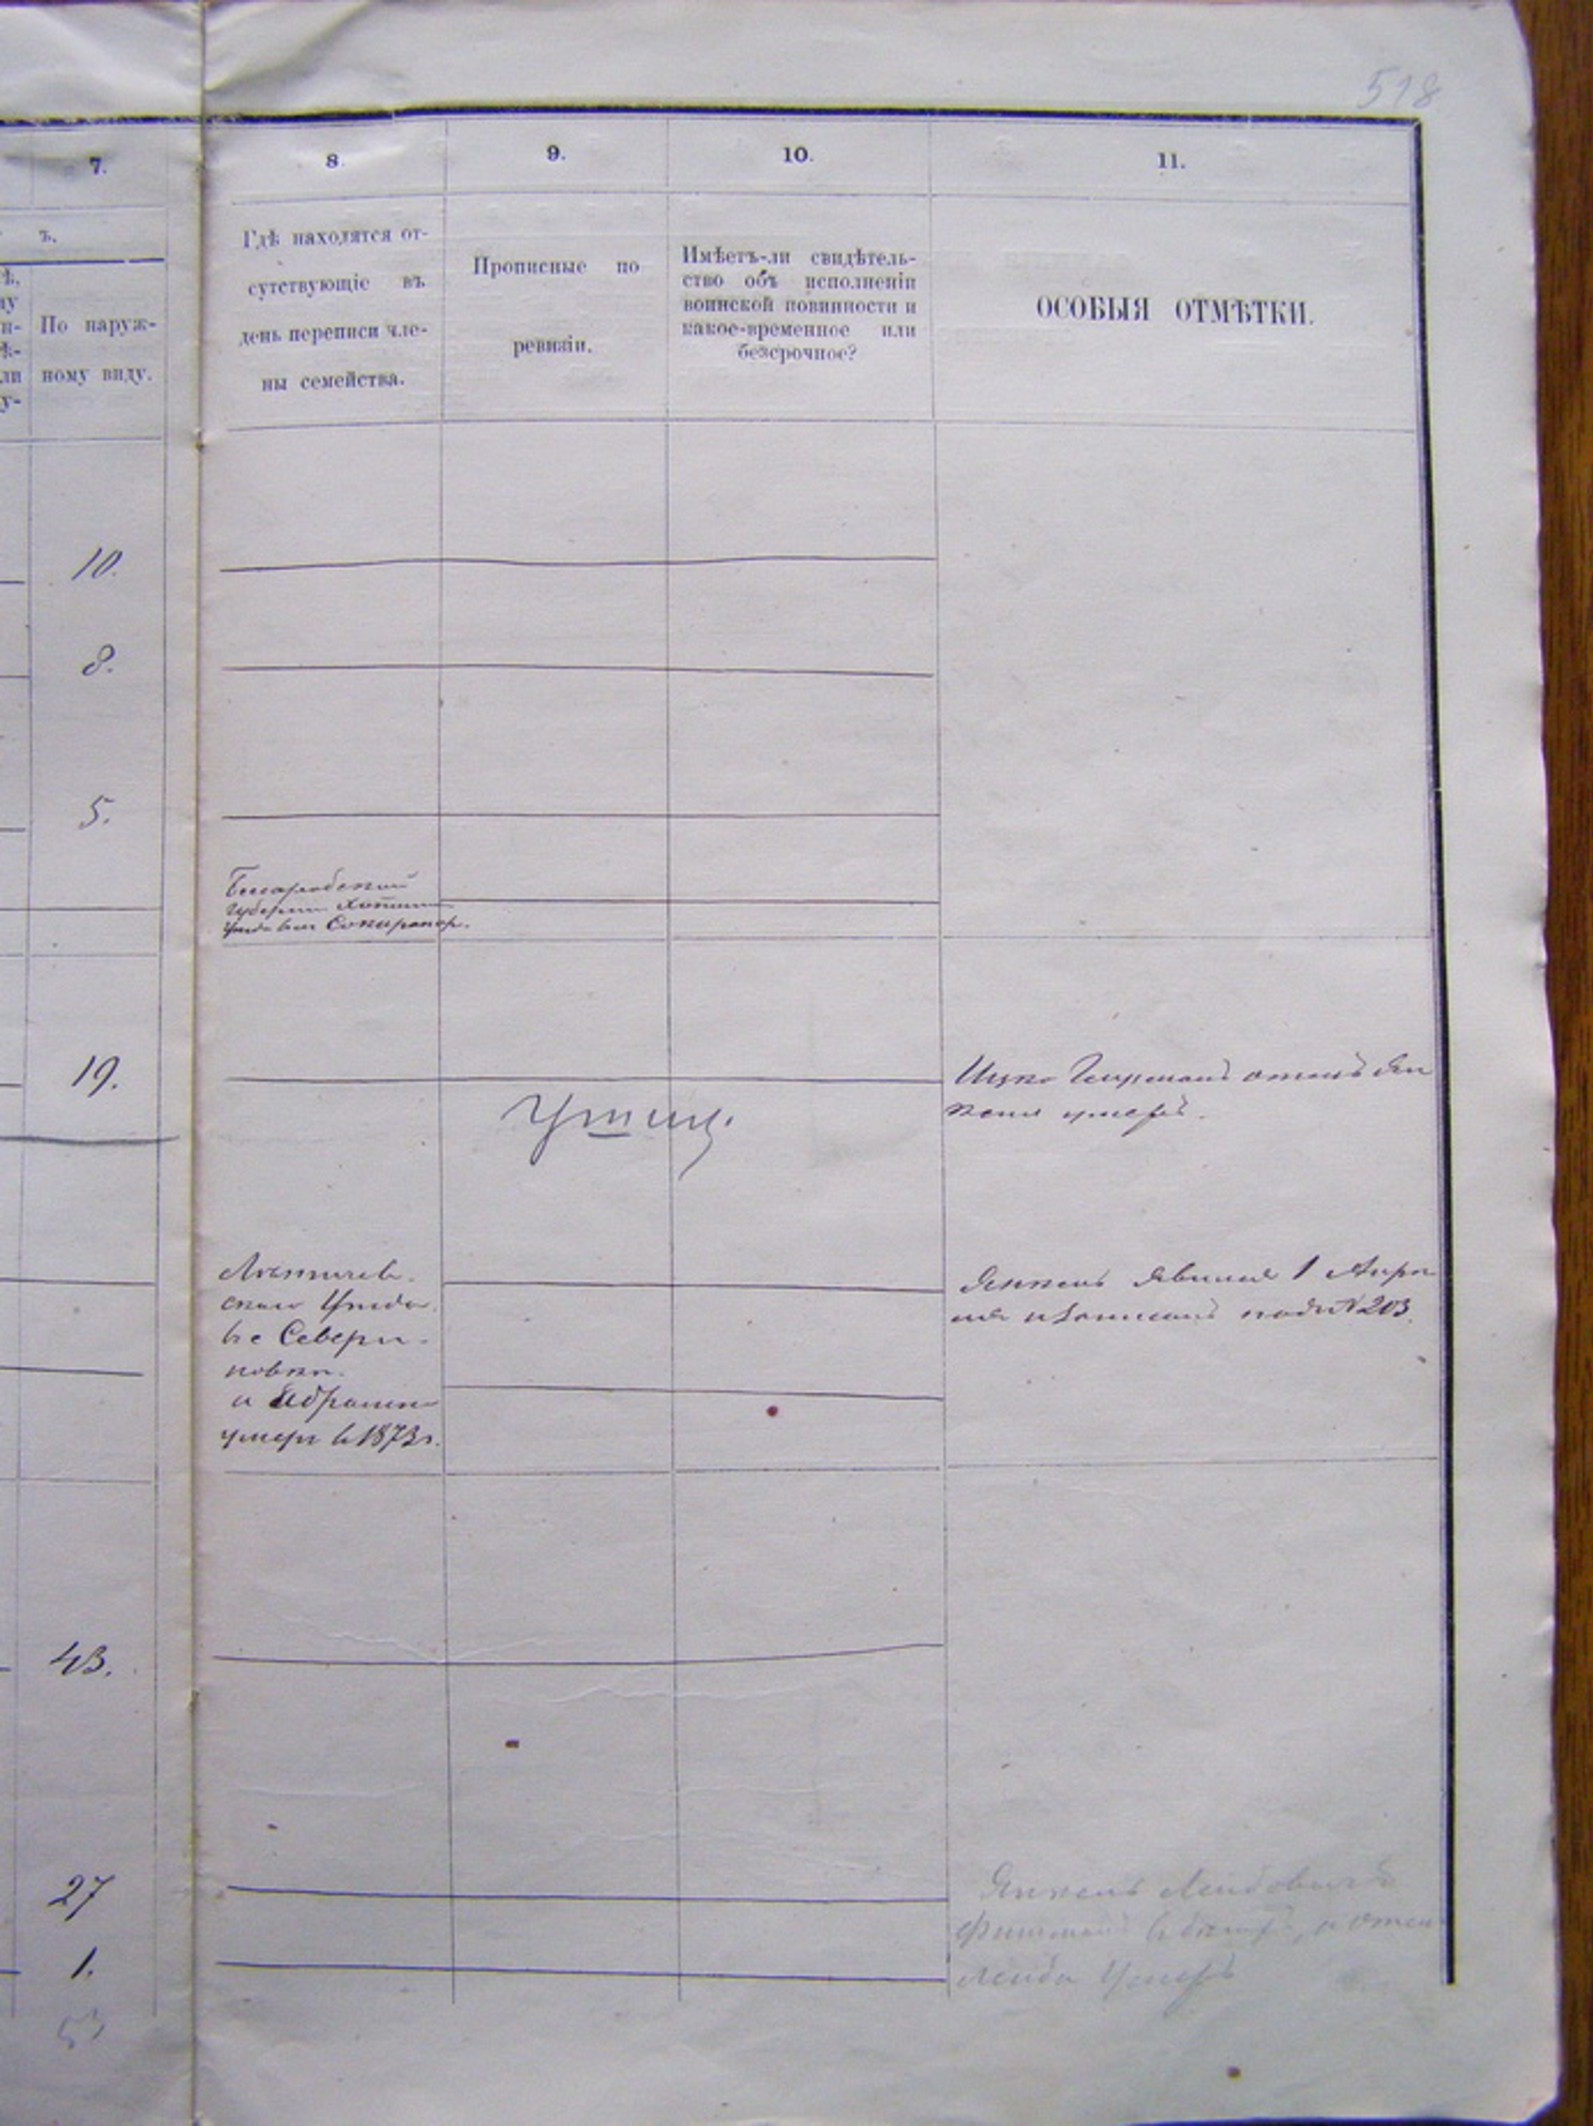 518
7. 8. 9. 10. 11.
ъ.
По наруж-
ному виду.
Гдѣ находятся от-
сутствующіе въ
день переписи чле-
ны семейства.
Прописные по
ревизіи.
Имѣетъ-ли свидѣтель-
ство объ исполненіи
воинской повинности и
какое-временное или
безсрочное?
ОСОБЫЯ ОТМѢТКИ.
10.
8.
5.
Бессарабской
Губерніи Хотинс
19.
Ицко отецъ Ян
келя умеръ.
Летичев-
скаго Уѣзда
въ Севери-
новки.
и Абрамко
умеръ в 1873 г.
Янкель явился 1 Апрѣ
ля и записанъ подъ № 203.
43.
27
1.
Янкель Лейбовичъ
отец
Лейба Умеръ